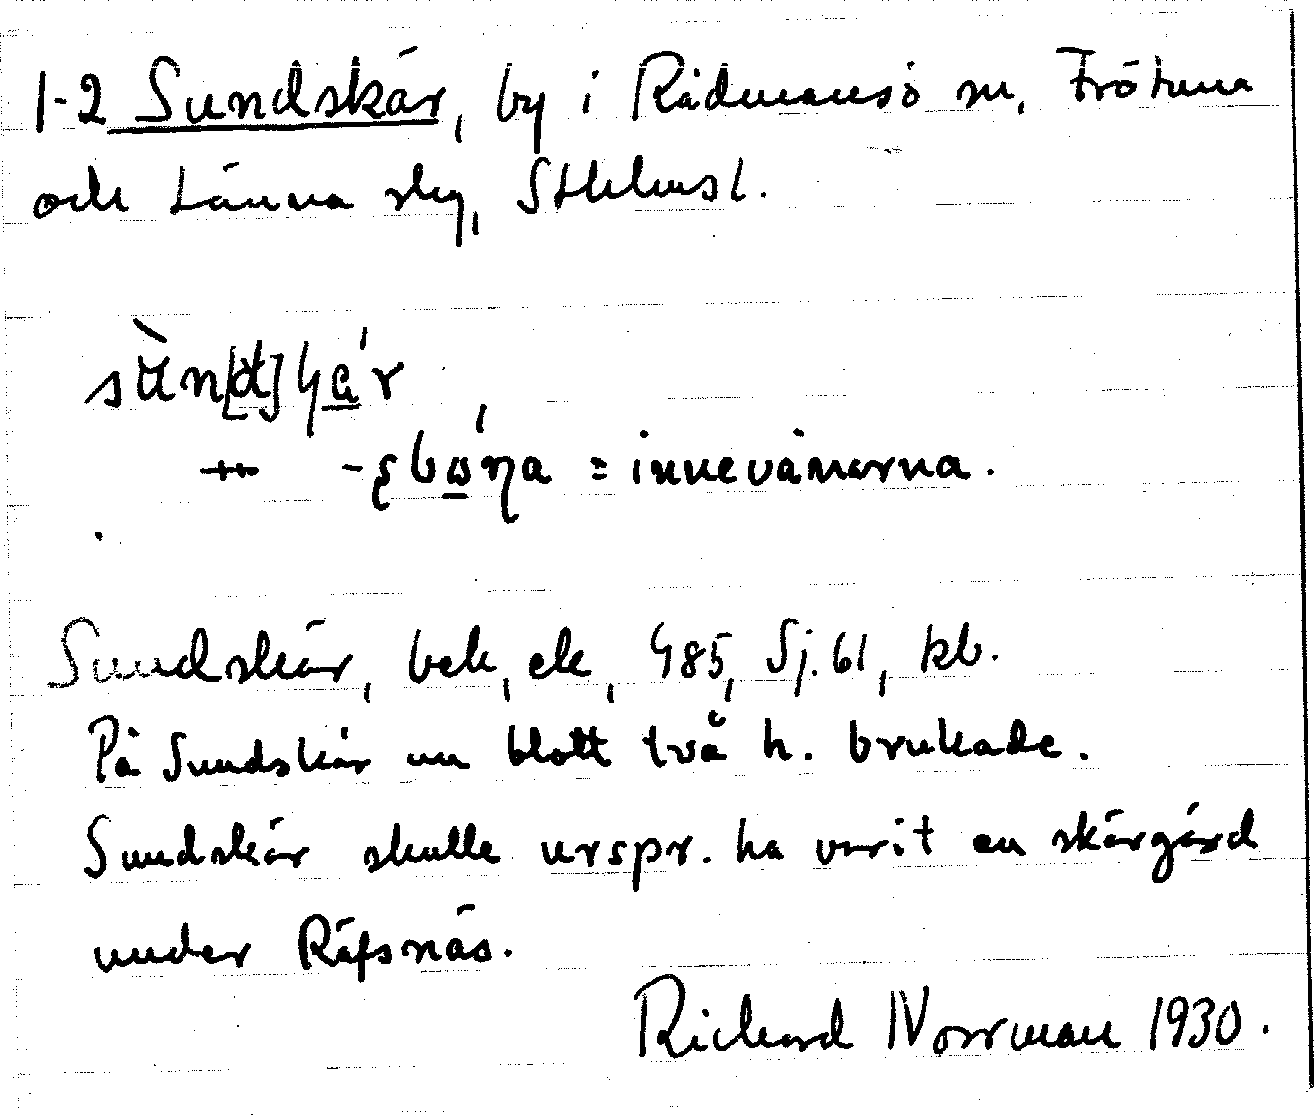 1-2 Sundskär, by i Rådmansö sn, Frötuna
och Länna slg, Sthlmsl.
-ʂbo̱´ɳa = innevånarna.
Sundskär, bek, ek, 485, Sj. 61, kb.
På Sundskär nu blott två h. brukade.
Sundskär skulle urspr. ha varit en skärgård
under Räfsnäs.
Richard Norrman 1930.